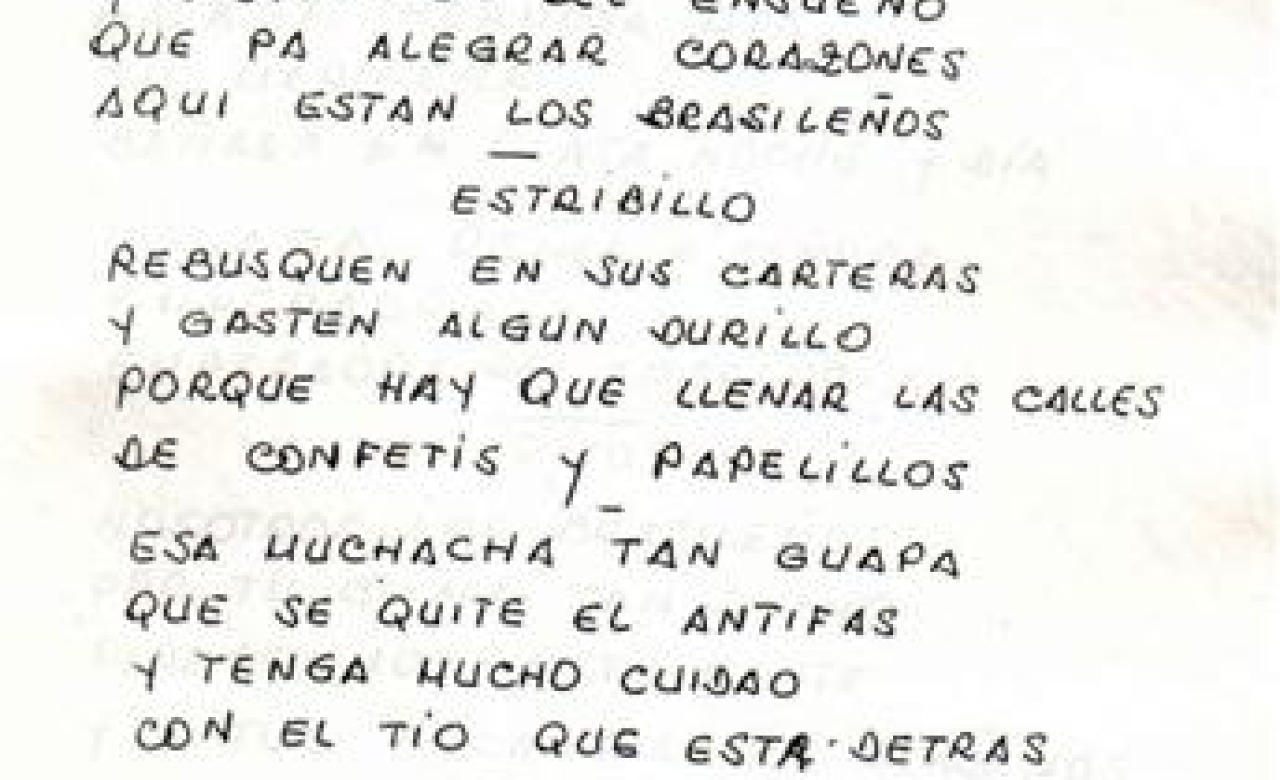 ENSUEÑO
QUE PA ALEGRAR CORAZONES
AQUI ESTAN LOS BRASILEÑOS
—
ESTRIBILLO
REBUSQUEN EN SUS CARTERAS
Y GASTEN ALGUN DURILLO
PORQUE HAY QUE LLENAR LAS CALLES
DE CONFETIS Y PAPELILLOS
—
ESA MUCHACHA TAN GUAPA
QUE SE QUITE EL ANTIFAS
Y TENGA MUCHO CUIDAO
CON EL TIO QUE ESTA DETRAS